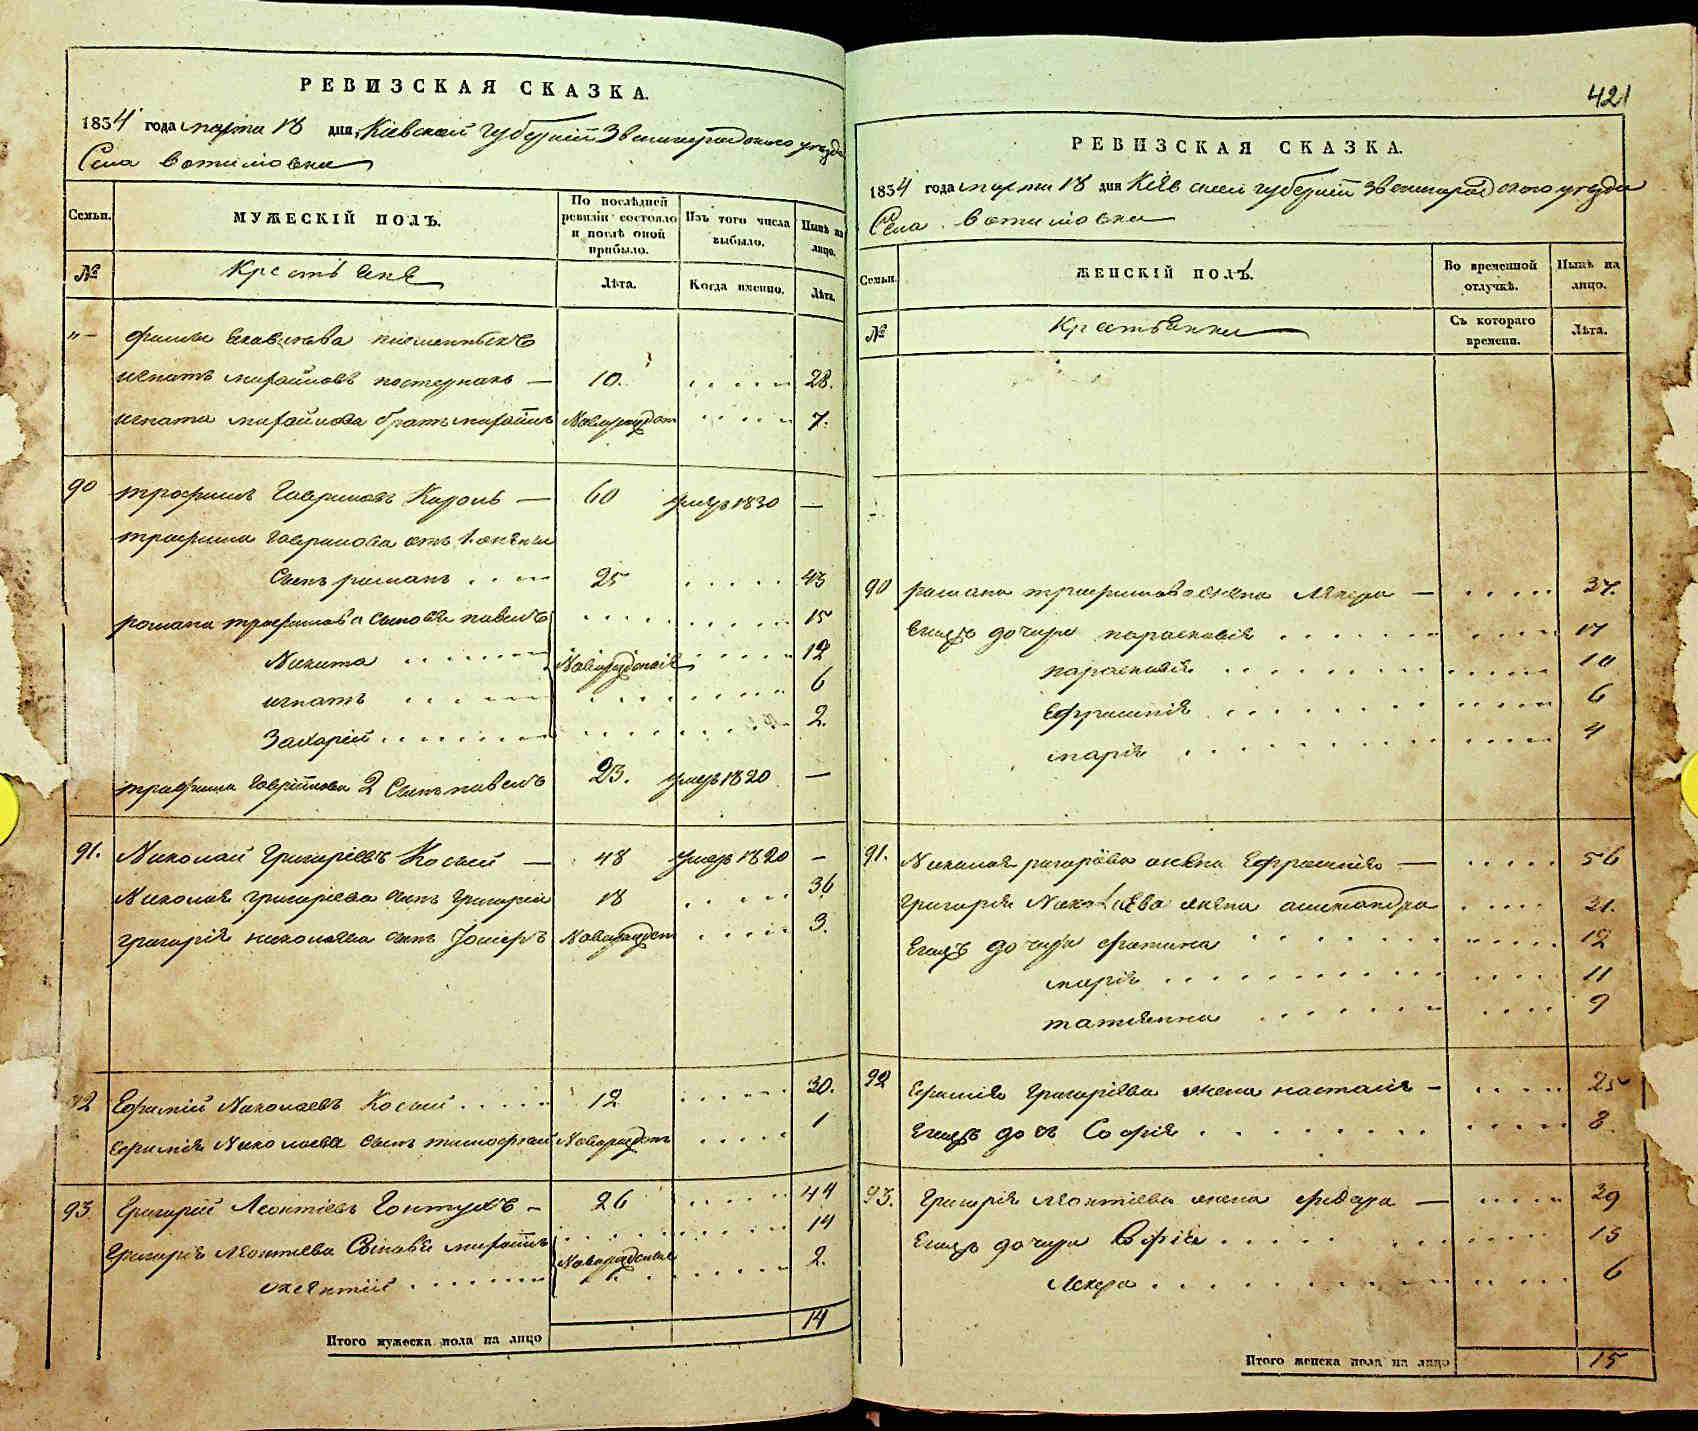 РЕВИЗСКАЯ СКАЗКА.
1834 года марта 18 дня, Кіевской губерніи Звенигородского уезда
Села вотилювки
Семьи.
МУЖЕСКІЙ ПОЛЪ.
По послѣдней ревизіи состояло и послѣ оной прибыло.
Изъ того числа выбыло.
Нынѣ на лицо.
№
Крестьяне
Лѣта.
Когда именно.
Лѣта.
"-
игнатъ михайловъ — 10. 28.
игната михайлова братъ михайлъ Новорожден 7.
90 трофимъ Гавриловъ Король — 60 умеръ 1830 —
трофима гаврилова отъ 1. жены
Сынъ романъ 25 43
романа трофимова сыновья павелъ 15
Никита Новорожденніе 12
игнатъ 6
Захарій 2.
трофима гаврійлова 2 Сынъ павелъ 23. умеръ 1820 —
91. Николай Григоріевъ Косый — 48 умеръ 1820 —
Николая григоріева сынъ григорій 18 36
григорія николаева сынъ Іосифъ Новорожден 3.
92 Ефимій Николаевъ Косый 12 30.
Ефимія Николаева сынъ тимофтей Новорожденъ 1
93 Григорій Леонтіевъ Гонтукъ — 26 44
Григорія леонтиева Синовья михайлъ 14
Новорожденніе
леонтий 2.
Итого мужеска пола на лицо 14
421
РЕВИЗСКАЯ СКАЗКА.
1834 года марта 18 дня Кіевской губерніи звенигородского уезда
Села вотилювки
Семьи.
ЖЕНСКІЙ ПОЛЪ.
Во временной отлучкѣ.
Нынѣ на лицо.
№
Крестьянки
Съ котораго времени.
Лѣта.
90 романа трофимова жена Лукера — 37.
Егожъ дочери параскевія 17
параскевія 10
Ефросинія 6
марія 4
91. Николая григоріева жена Ефросинія — 56
Григорія Николаева жена александра 31.
Егожъ дочери фотина 12
марія 11
татіянна 9
92 Ефимія Григоріева жена настасія — 25
Егожъ дочъ Софія 8.
93. Григорія леонтіева жена федора — 39
Егожъ дочери Софія 13
Лукера 6
Итого женска пола на лицо 15